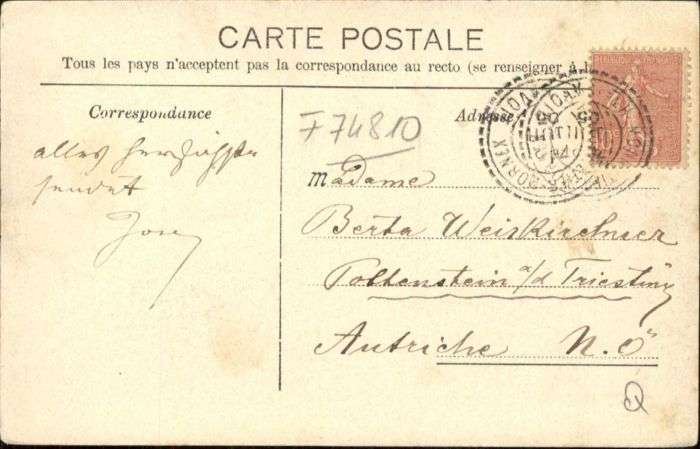 CARTE POSTALE
Tous les pays n'acceptent pas la correspondance au recto (se renseigner à l
Correspondance
Adresse
F74810
alles herzlichste
sendet
Josef
Madame
Berta Weiskirchner
Pottenstein a/d Triesting
Autriche N.Ö